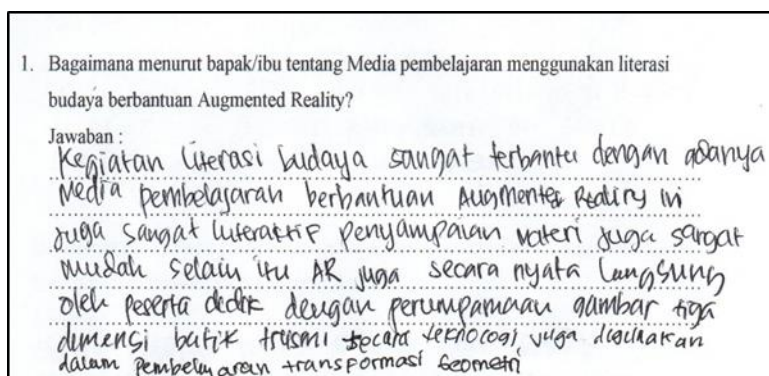 1. Bagaimana menurut bapak/ibu tentang Media pembelajaran menggunakan literasi
budaya berbantuan Augmented Reality?
Jawaban :
Kegiatan literasi budaya sangat terbantu dengan adanya
Media pembelajaran berbantuan Augmented Reality ini
juga sangat interaktif penyampaian materi juga sangat
mudah selain itu AR juga secara nyata langsung
oleh peserta didik dengan perumpamaan gambar tiga
dimensi batik trusmi secara teknologi juga digunakan
dalam pembelajaran transformasi geometri